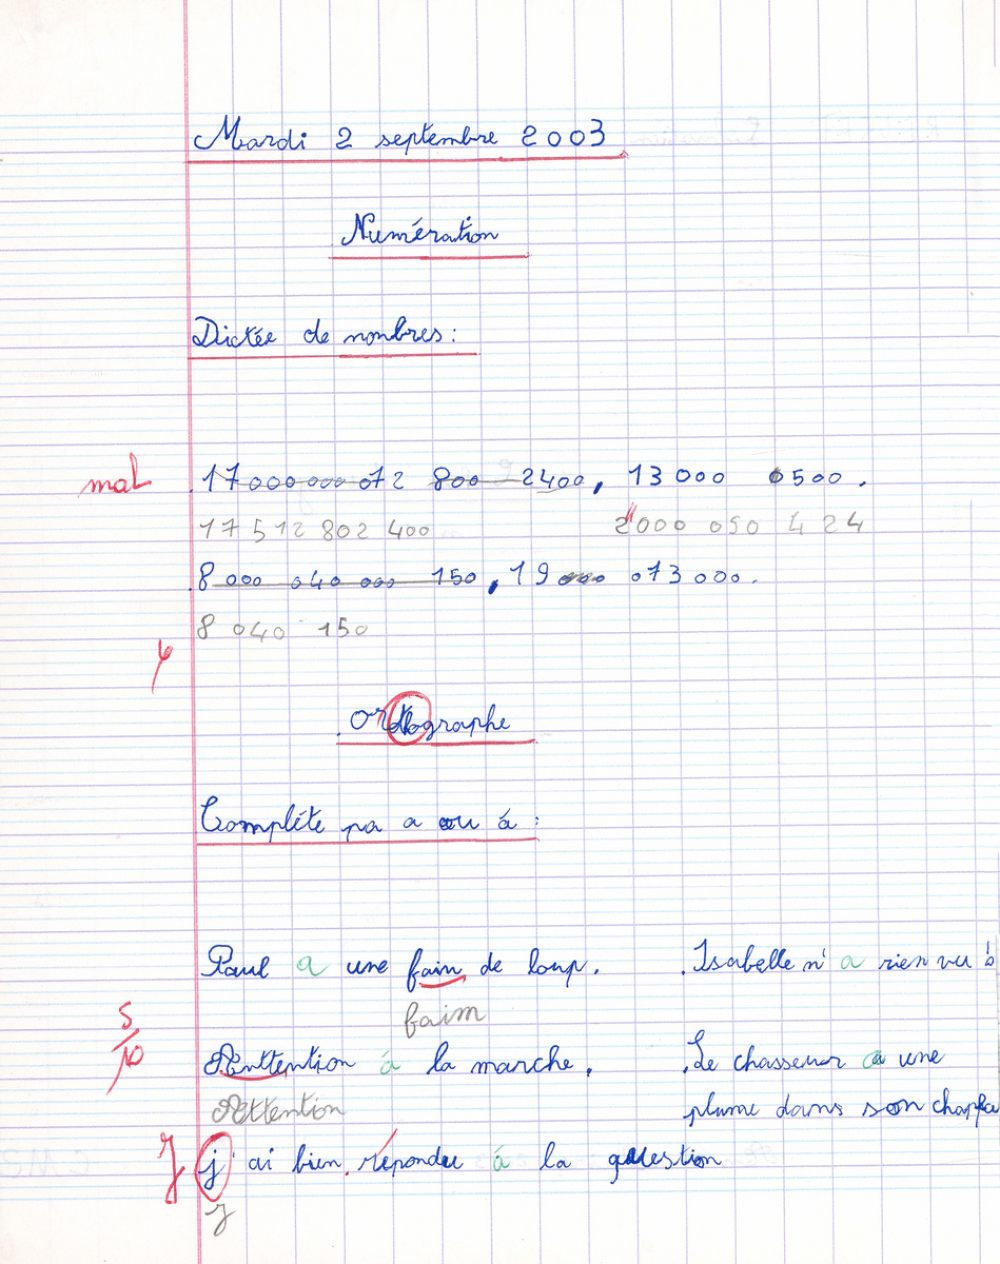 Mardi 2 septembre 2003
Numération
Dictée de nombres :
mal 17 000 000 072 800 2400, 13 000 6500.
17 512 802 400 2 000 050 424
8 000 040 000 150, 19 000 073 000.
8 040 150
Ortographe
Complète pa a ou à :
Paul a une fain de loup. Isabelle n'a rien vu
faim
5/10
Anttention à la marche. Le chasseur a une
Attention plume dans son chapea
J j'ai bien répondu à la question
J